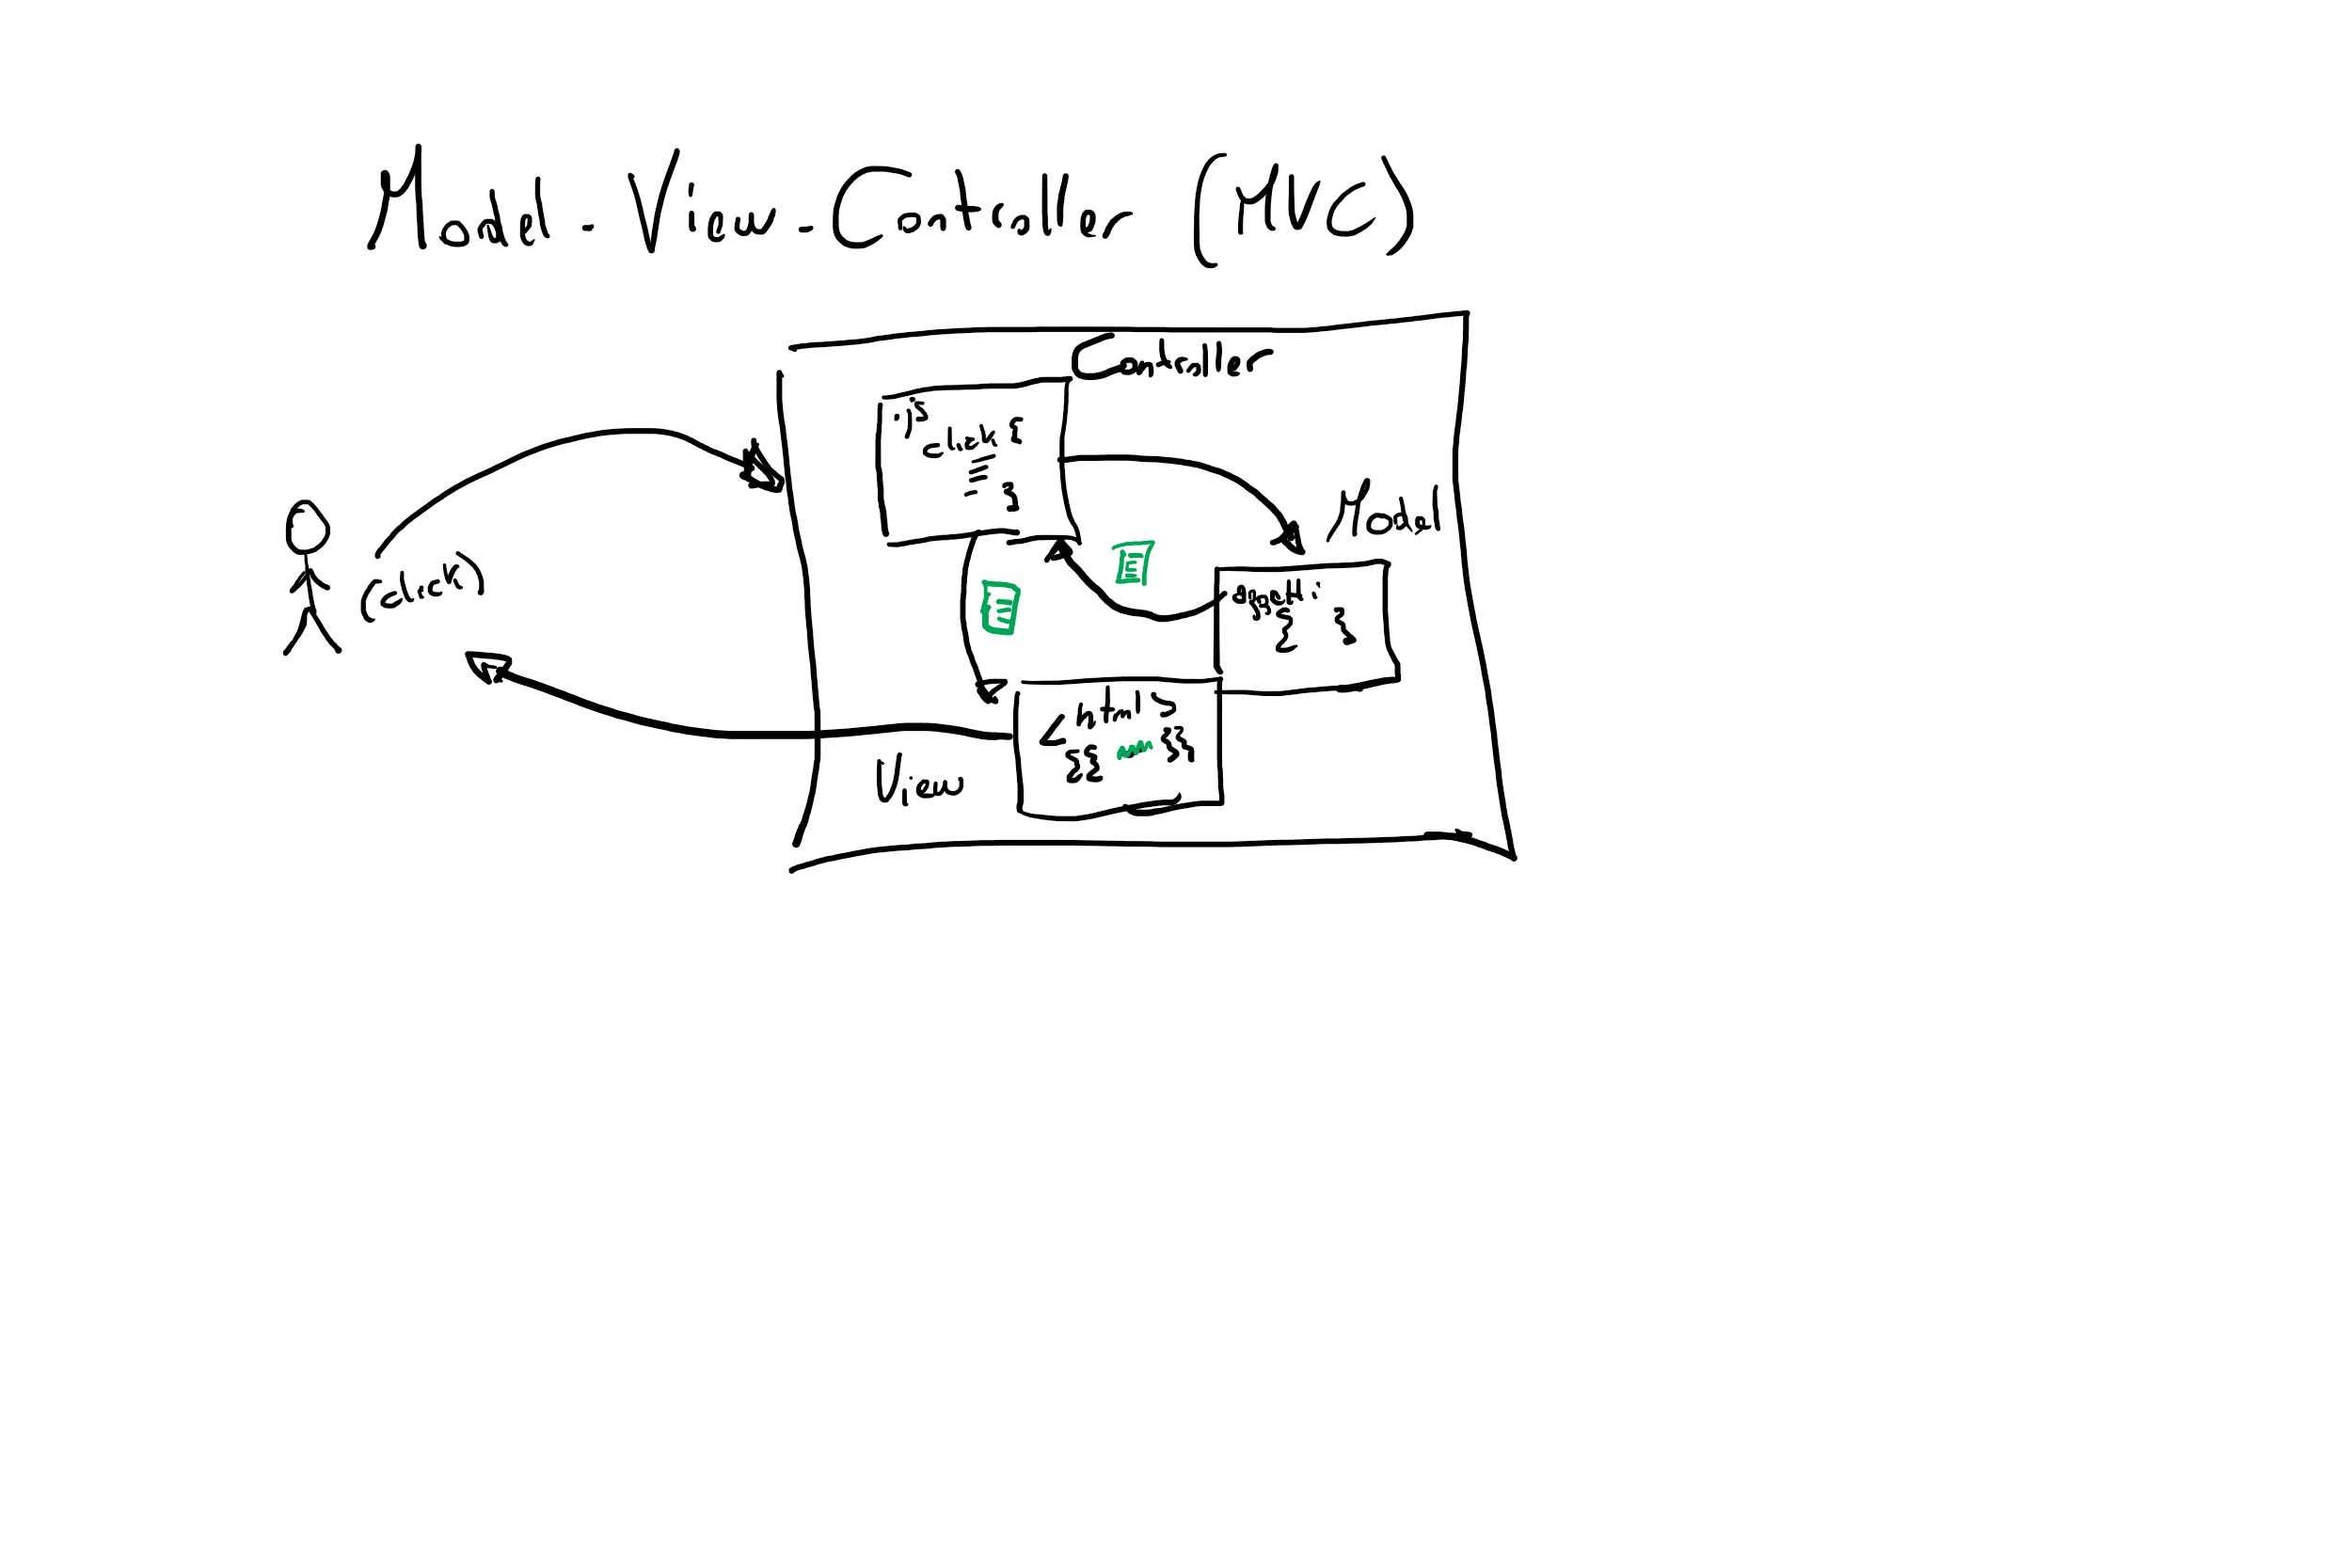 Model-View-Controller (MVC)
Controller
.js
click {
}
Model
(click)
{ }
<html>
{{ }}
View